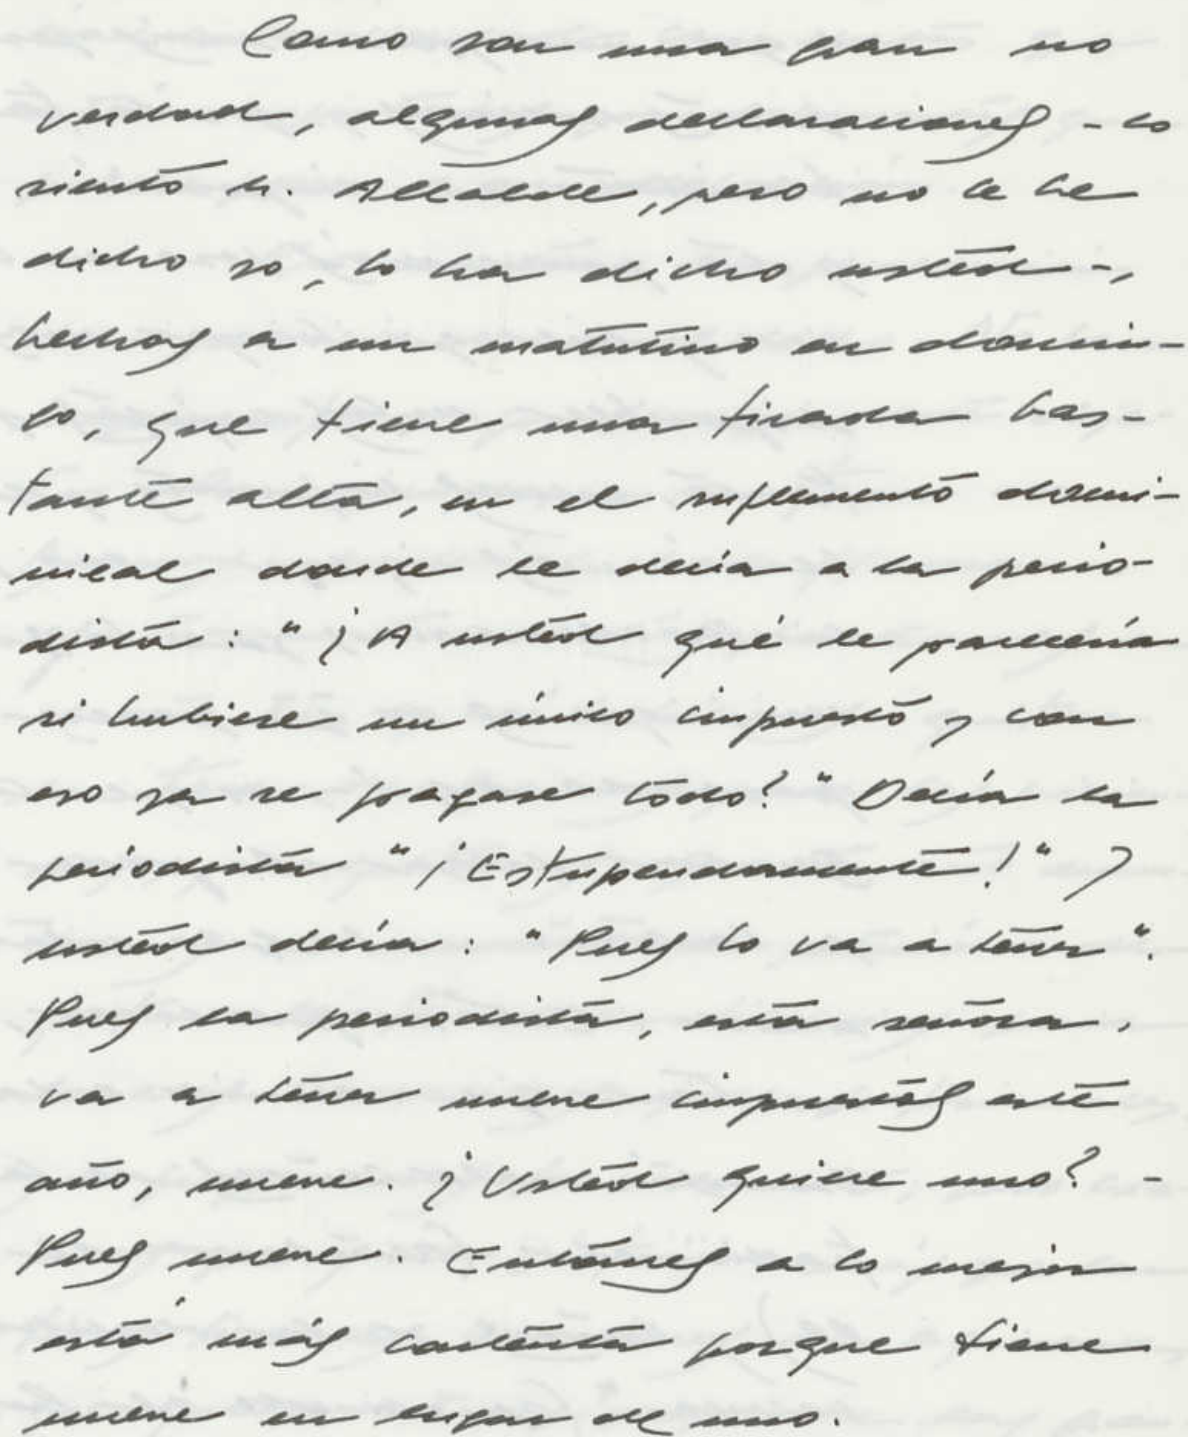 Como son una gran no
verdad, algunas declaraciones - lo
siento Sr. Alcalde, pero no le he
dicho yo, lo ha dicho usted -,
hechas a un matutino en domin-
go, que tiene una tirada bas-
tante alta, en el suplemento domi-
nical donde le decía a la perio-
dista: "¿A usted qué le parecería
si hubiese un único impuesto y con
eso ya se pagase todo?" Decía la
periodista "¡Estupendamente!" y
usted decía: "Pues lo va a tener".
Pues la periodista, esta señora,
va a tener nueve impuestos este
año, nueve. ¿Usted quiere uno? -
Pues nueve. Entonces a lo mejor
está más contenta porque tiene
nueve en lugar de uno.